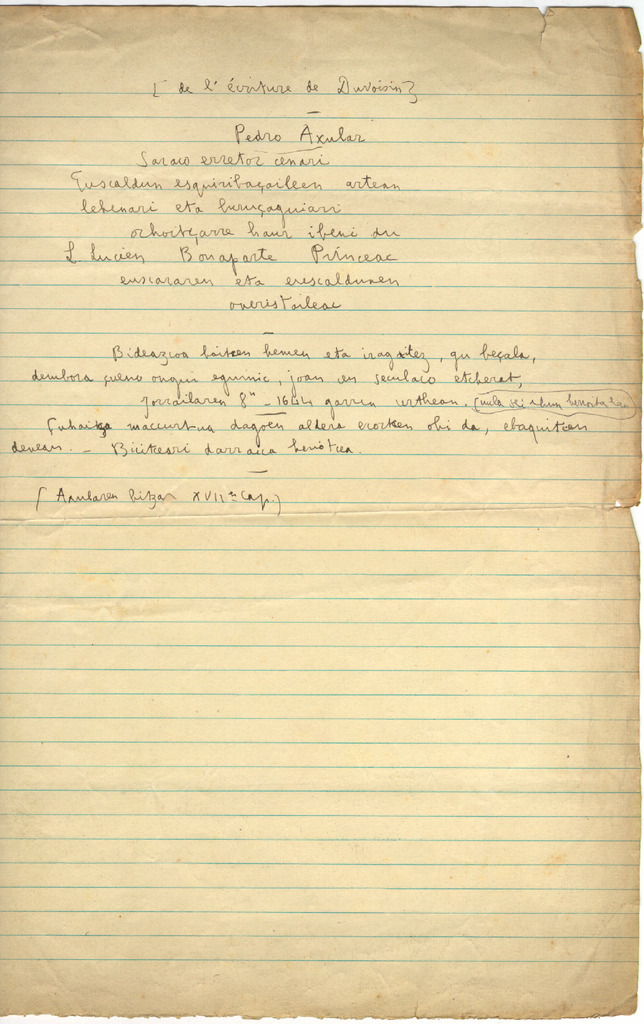 [ de l'écriture de Duvoisin ]
Pedro Axular
Saraco erretor cenari
Euscaldun esquiribaçaileen artean
lehenari eta buruçaguiari
orhoitçarre haur ibeni du
L. Lucien Bonaparte Princeac
euscararen eta euscaldunen
oneristaileac
Bideazcoa baitzen hemen eta iragaitez, gu beçala,
dembora çueno ongui eguinic, joan en seculaco etcherat,
Jorrailaren 8ⁿ - 1644 garren urthean. (mila sei ehun
Çuhaitza maccurtua dagoen aldera erortzen ohi da, ebaquitcen
denean. - Bicitzeari darraica heriotcea.
(Axularen hitza XVIIⁿ Cap.)